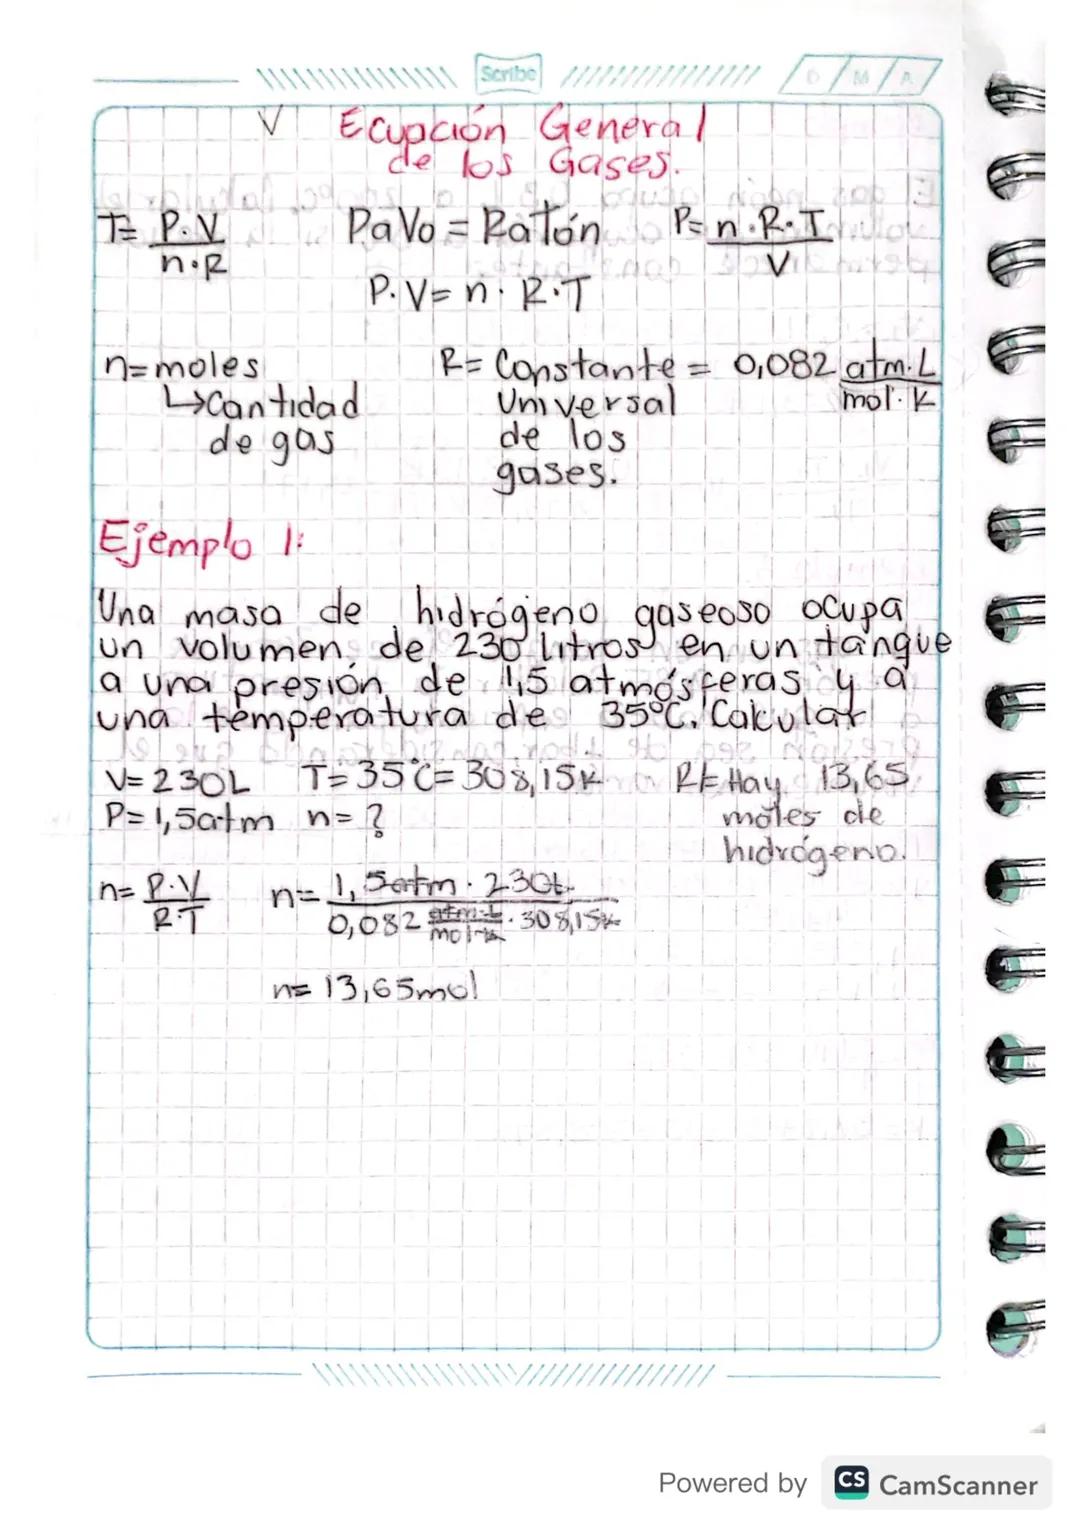 Scribe
D / M / A
V Ecuación General
de los Gases.
T= P.V / n.R PaVo = Ratón P= n.R.T / V
P.V= n. R.T
n=moles R= Constante = 0,082 atm.L / mol.K
↳Cantidad Universal
de gas de los
gases.
Ejemplo 1:
Una masa de hidrógeno gaseoso ocupa
un volumen de 230 litros en un tanque
a una presión de 1,5 atmósferas y a
una temperatura de 35°C. Calcular
V= 230L T= 35°C= 308,15K R/= Hay 13,65
P= 1,5atm n= ? moles de
hidrógeno.
n= P.V / R.T n= 1,5atm . 230L / 0,082 atm.L / mol.K . 308,15K
n= 13,65mol
Powered by CS CamScanner